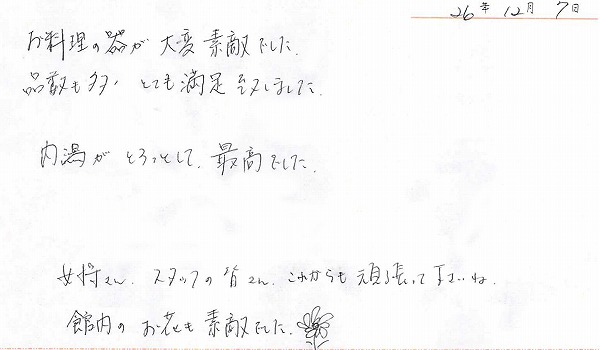 26年 12月 7日
お料理の器が 大変 素敵でした.
品数も多く とても 満足 致しました.
内湯が とろっとして、最高でした.
女将さん、スタッフの皆さん、これからも 頑張って下さいね.
館内の お花も 素敵でした.